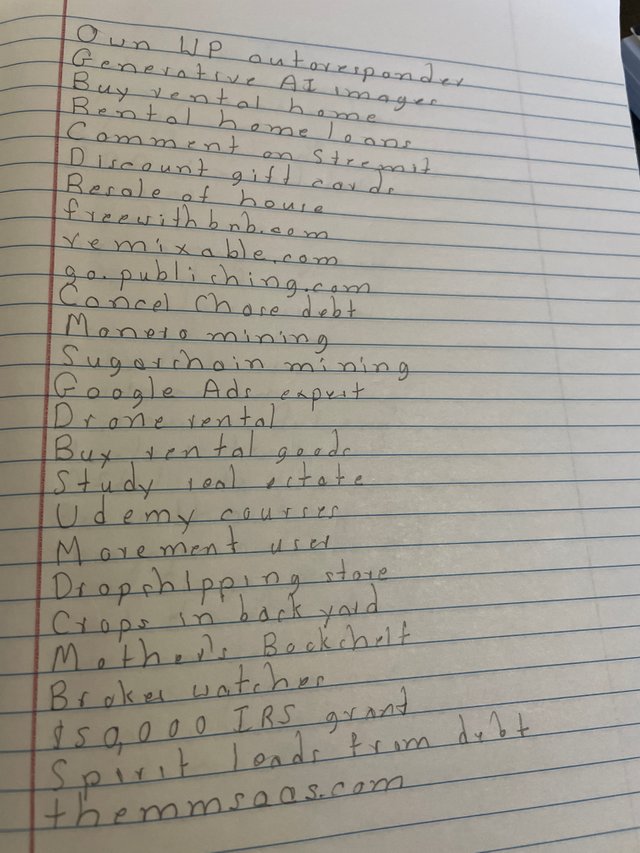 Own WP autoresponder
Generative AI images
Buy rental home
Rental home loans
Comment on Steemit
Discount gift cards
Resale of house
freewithbnb.com
remixable.com
go.publishing.com
Cancel Chase debt
Monero mining
Sugarchain mining
Google Ads expert
Drone rental
Buy rental goods
Study real estate
Udemy courses
Movement user
Dropshipping store
Crops in back yard
Mother's Bookshelf
Broker watches
$50,000 IRS grant
Spirit leads from debt
themmsaas.com